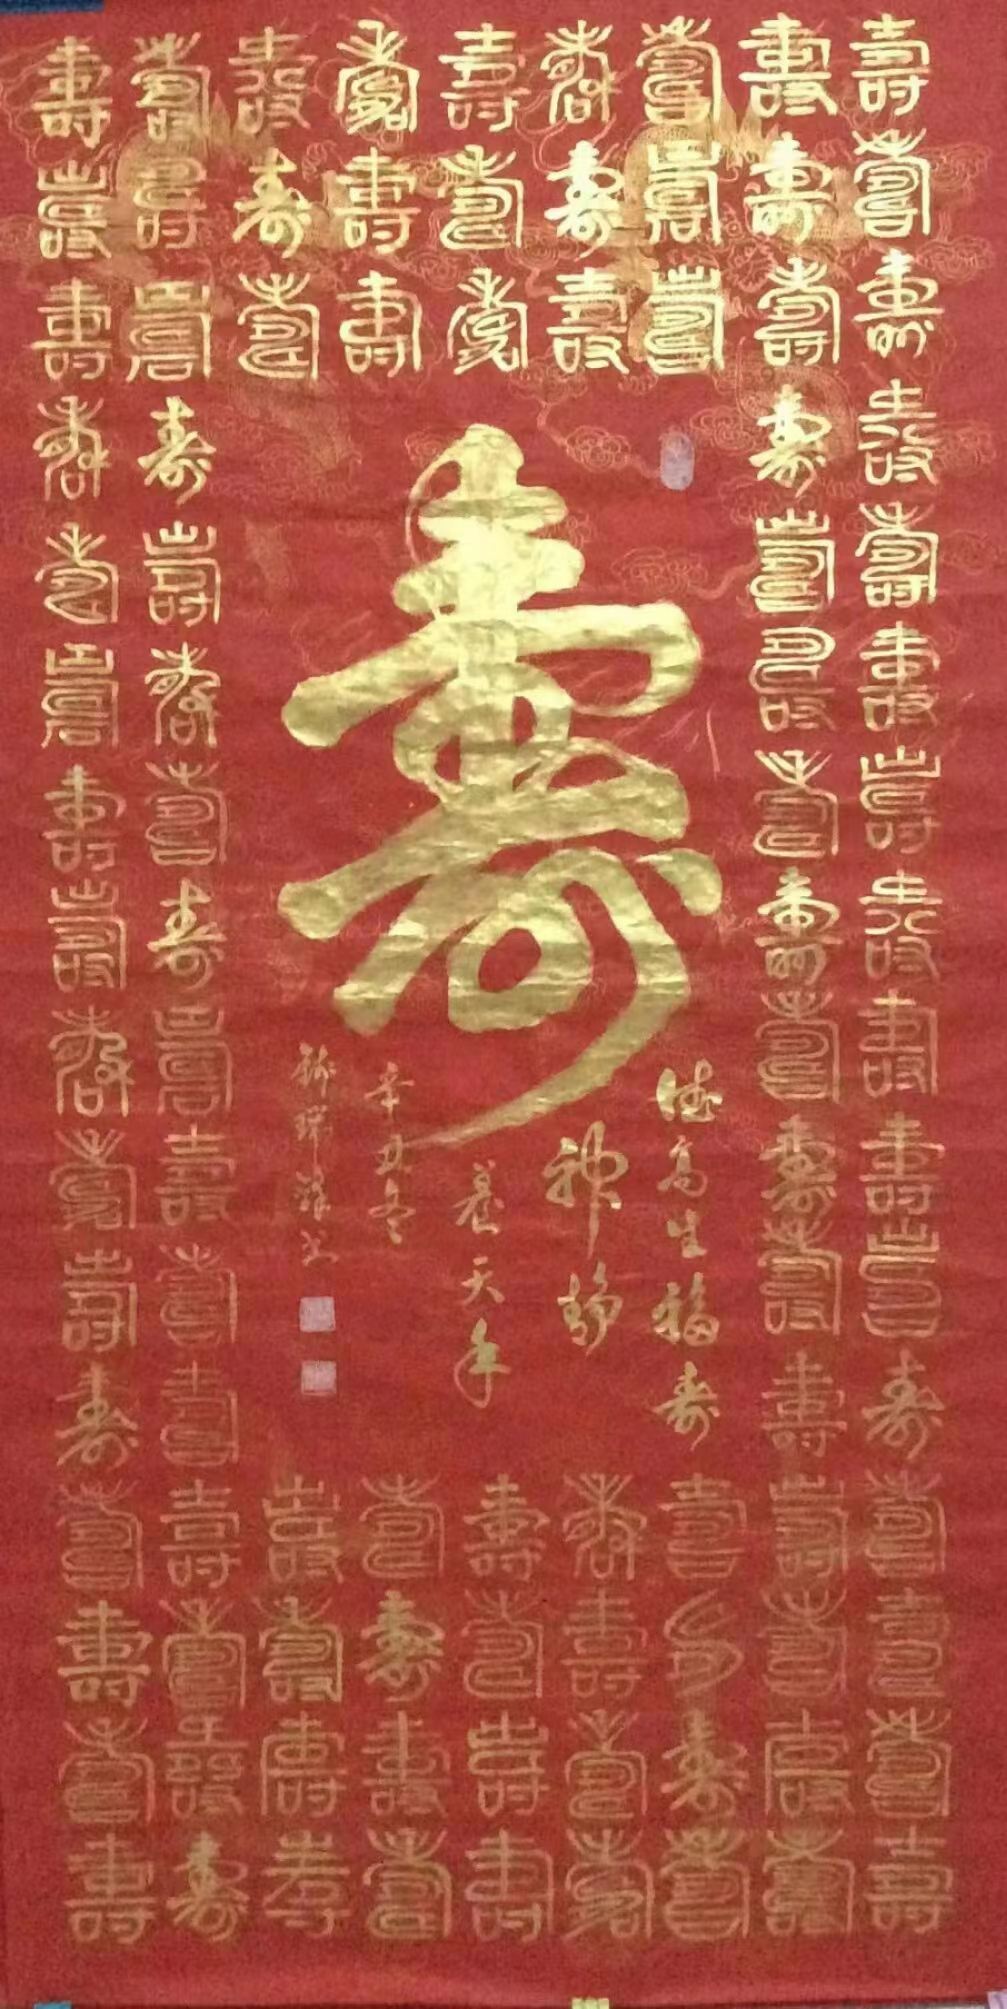 壽壽壽壽壽壽壽壽壽壽壽壽壽壽壽壽
壽壽壽壽壽壽壽壽壽壽壽壽壽壽壽壽
壽壽壽
壽壽壽
壽壽壽
壽壽壽
壽壽壽
壽
德高生福寿
神静
养天年
辛丑冬
瑞祥书
壽壽壽壽
壽壽壽壽
壽壽壽壽
壽壽壽壽
壽壽壽壽
壽壽壽壽壽壽壽壽壽壽壽壽壽壽壽壽
壽壽壽壽壽壽壽壽壽壽壽壽壽壽壽壽